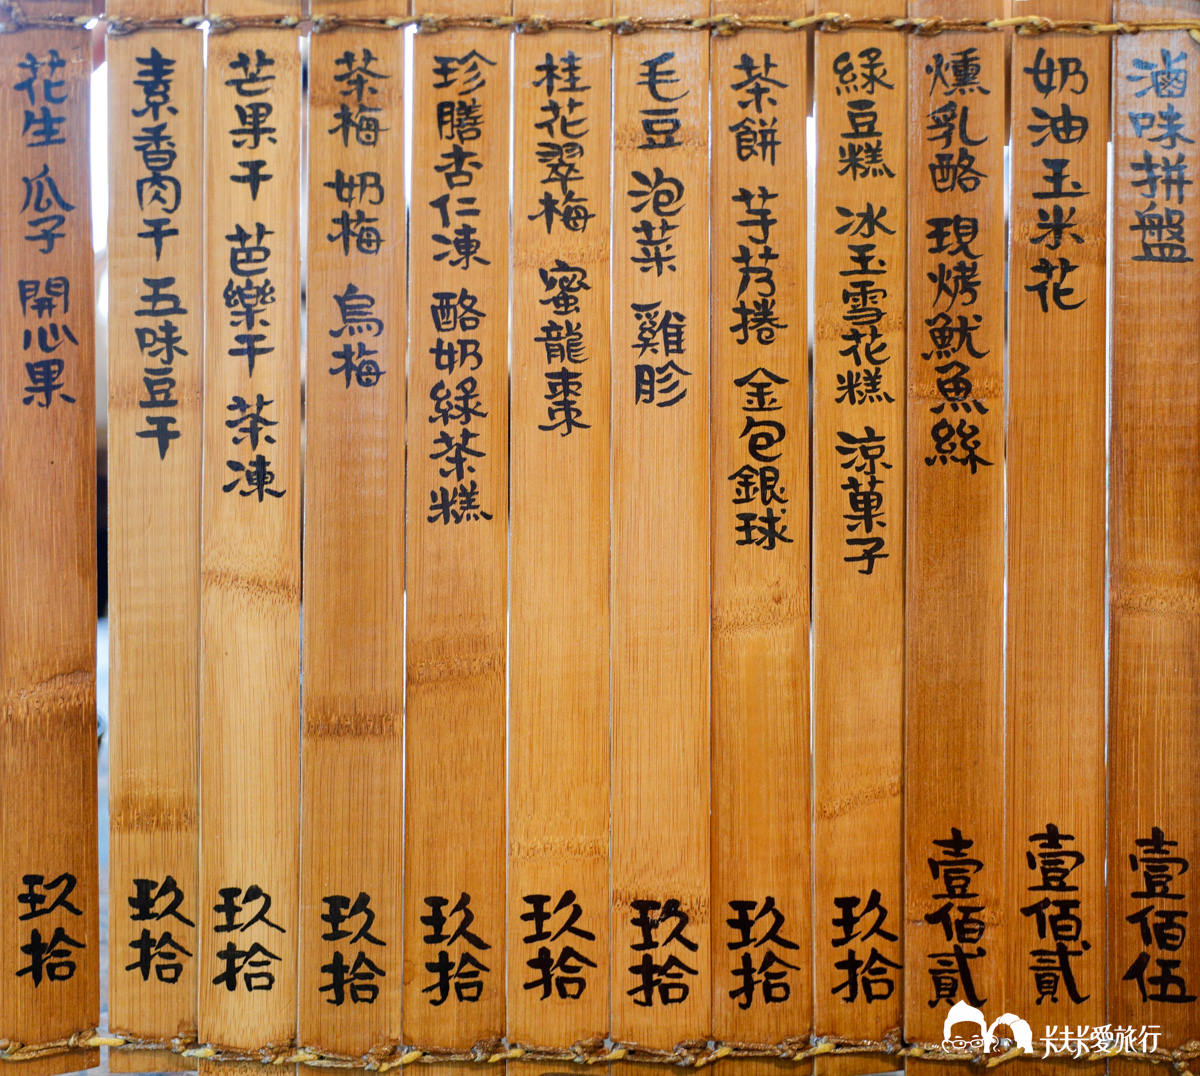 滷味拼盤 壹佰伍
奶油玉米花 壹佰貳
燻乳酪 現烤魷魚絲 壹佰貳
綠豆糕 冰玉雪花糕 涼菓子 玖拾
茶餅 芋艿捲 金包銀球 玖拾
毛豆 泡菜 雞胗 玖拾
桂花翠梅 蜜龍棗 玖拾
珍膳杏仁凍 酪奶綠茶糕 玖拾
茶梅 奶梅 烏梅 玖拾
芒果干 芭樂干 茶凍 玖拾
素香肉干 五味豆干 玖拾
花生 瓜子 開心果 玖拾
卡夫卡愛旅行